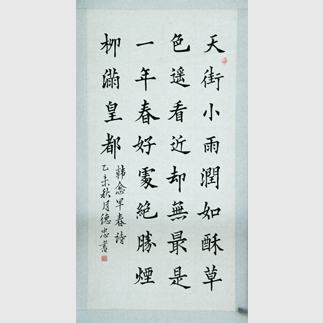 天街小雨潤如酥草
色遥看近却無最是
一年春好處絶勝煙
柳滿皇都
韓愈早春詩
乙未秋月德忠書